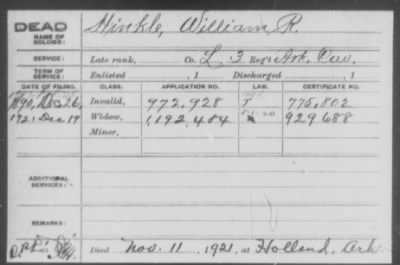 DEAD Hinkle, William R.
NAME OF SOLDIER:
SERVICE: Late rank, Co. L, 3 Reg't Ark. Cav.
TERM OF SERVICE: Enlisted , 1 Discharged , 1
DATE OF FILING. CLASS. APPLICATION NO. LAW. CERTIFICATE NO.
1890, Dec 26, Invalid, 972,928 775,802
1921 Dec 19 Widow, 1,192,484 929688
Minor,
ADDITIONAL SERVICES:
REMARKS:
Died Nov. 11, 1921, at Holland, Ark